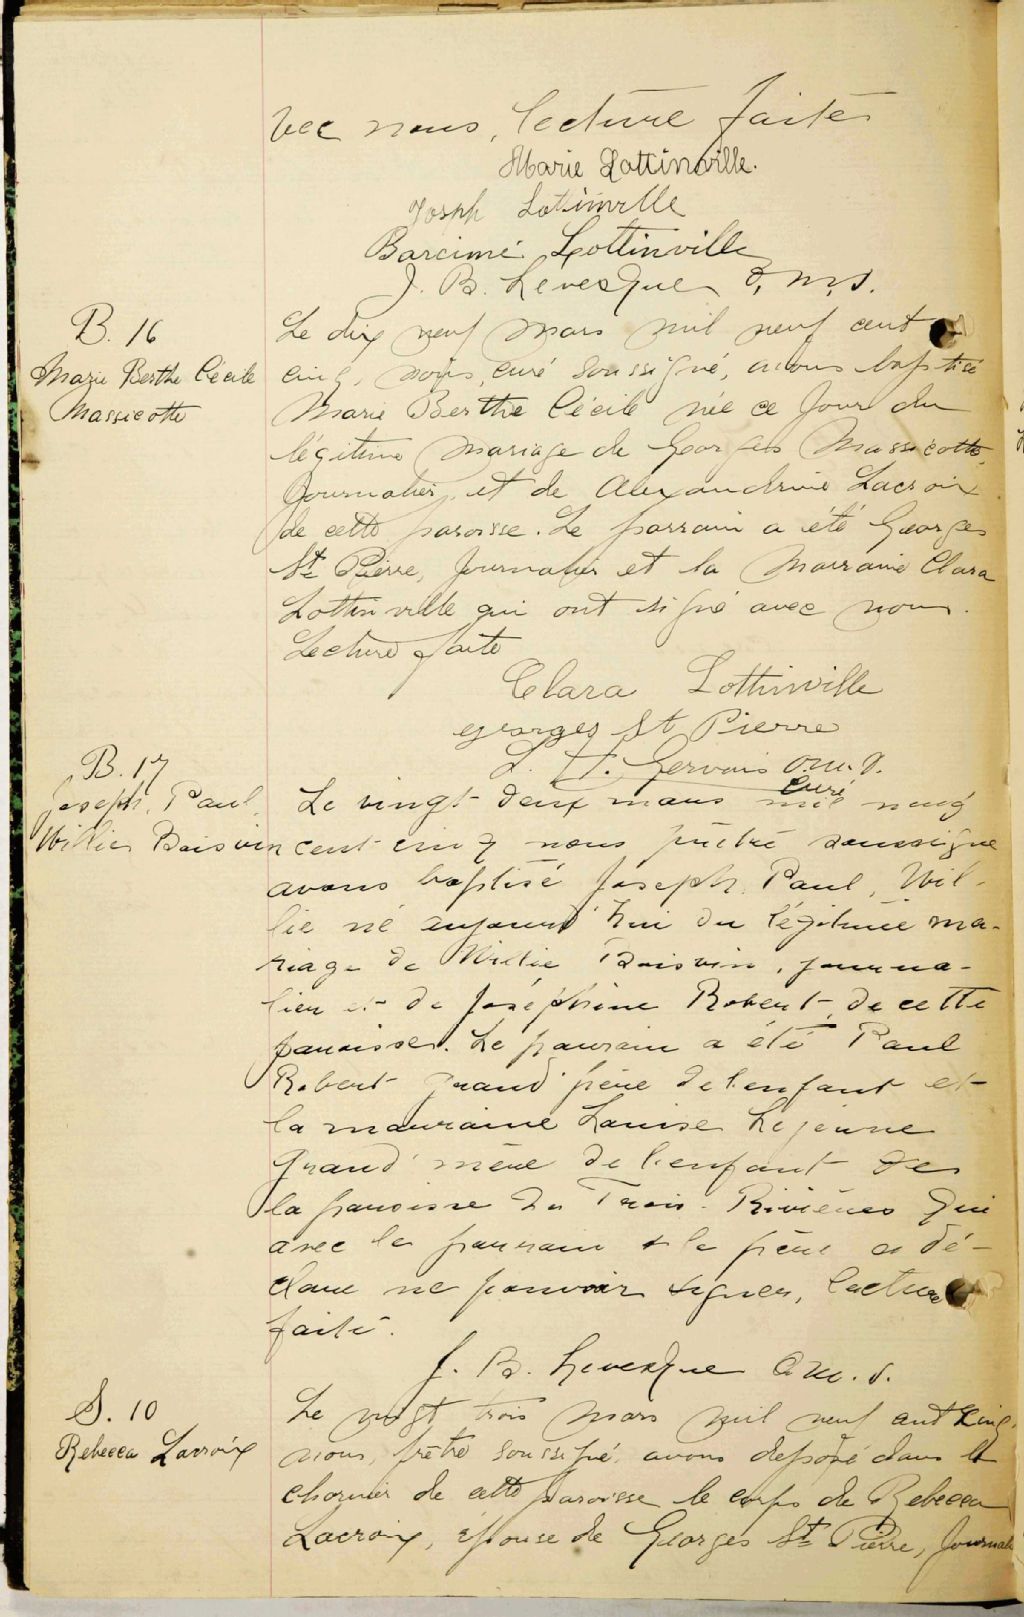 vec nous, lecture faite
Marie Lottinville.
Joseph Lottinville
Barcimé Lottinville
J. B. Levesque o.m.i.
B. 16
Marie Berthe Cécile
Massicotte
Le dix neuf mars mil neuf cent
cinq, nous, curé soussigné, avons baptisé
Marie Berthe Cécile née ce jour du
légitime mariage de Georges Massicotte,
journalier, et de Alexandrine Lacroix
de cette paroisse. Le parrain a été Georges
St Pierre, journalier et la marraine Clara
Lottinville qui ont signé avec nous.
Lecture faite
Clara Lottinville
georges St Pierre
Gervais o.m.i.
curé
B. 17
Joseph, Paul,
Willie Boisvin
Le vingt deux mars mil neuf
cent cinq nous prêtre soussigné
avons baptisé Joseph, Paul, Wil-
lie né aujourd'hui du légitime ma-
riage de Willie Boisvin, journa-
lier et de Joséphine Robert, de cette
paroisse. Le parrain a été Paul
Robert grand'père de l'enfant et
la marraine Louise Lejeune
grand'mère de l'enfant de
la paroisse des Trois-Rivières qui
avec le parrain & le père a dé-
claré ne pouvoir signer, lecture
faite.
J. B. Levesque o.m.i.
S. 10
Rebecca Lacroix
Le vingt trois mars mil neuf cent cinq,
nous, prêtre soussigné avons déposé dans le
charnier de cette paroisse le corps de Rebecca
Lacroix, épouse de Georges St Pierre, journal